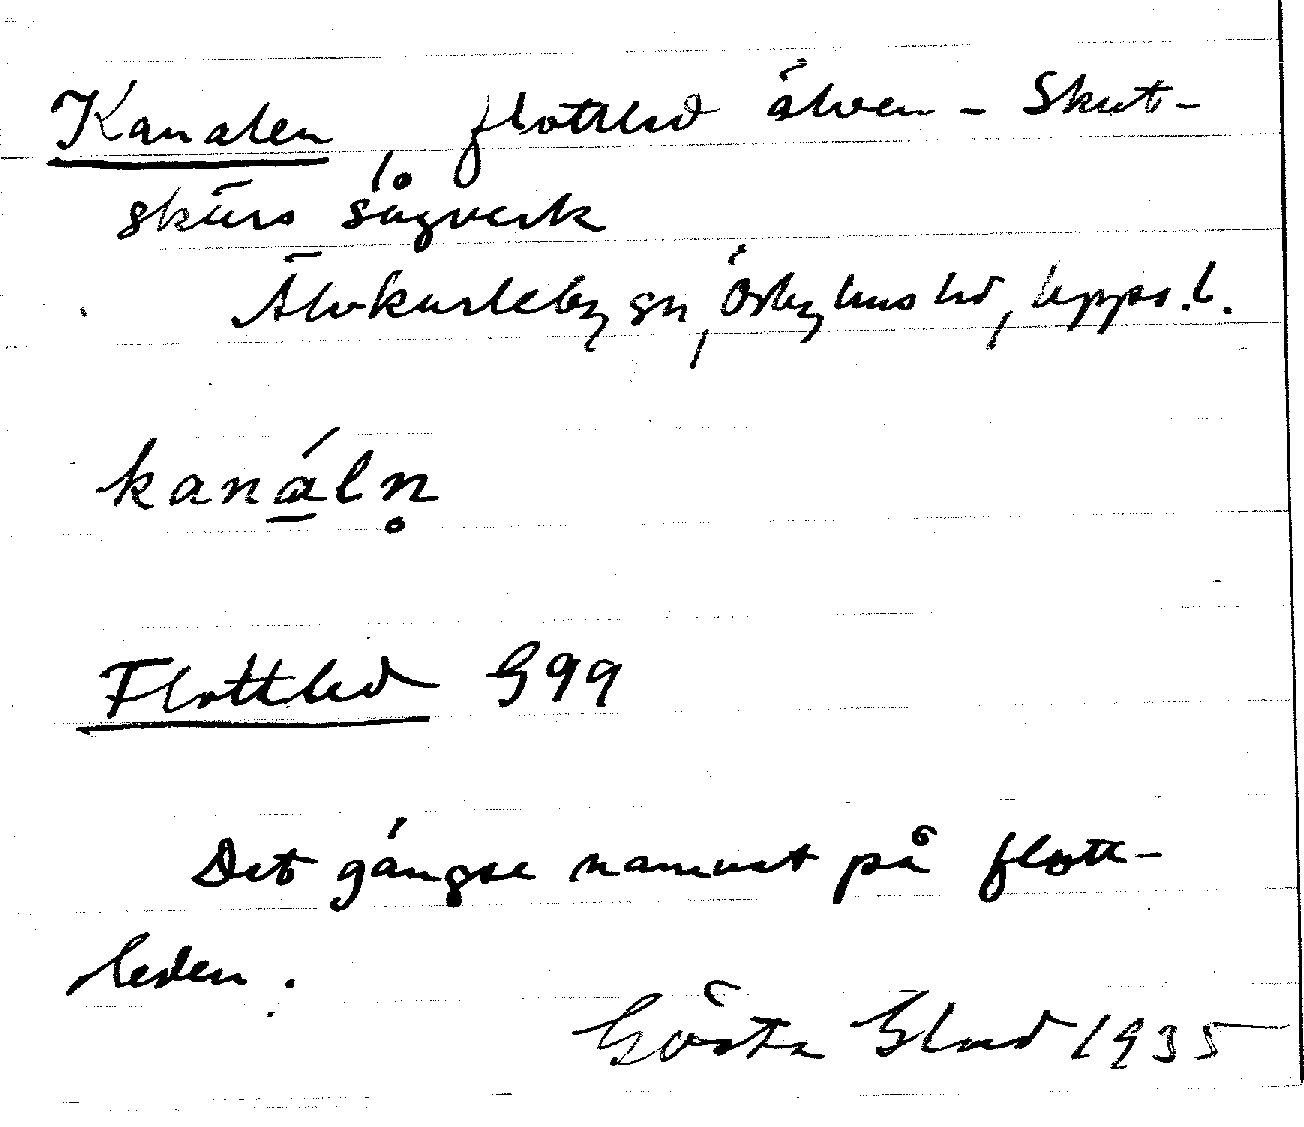 Kanalen flottled älven - Skut-
skärs sågverk
Älvkarleby sn, Örbyhus hd, Upps. l.
kanáln̥
Flottled G99
Det gängse namnet på flott-
leden.
Gösta Elund 1935